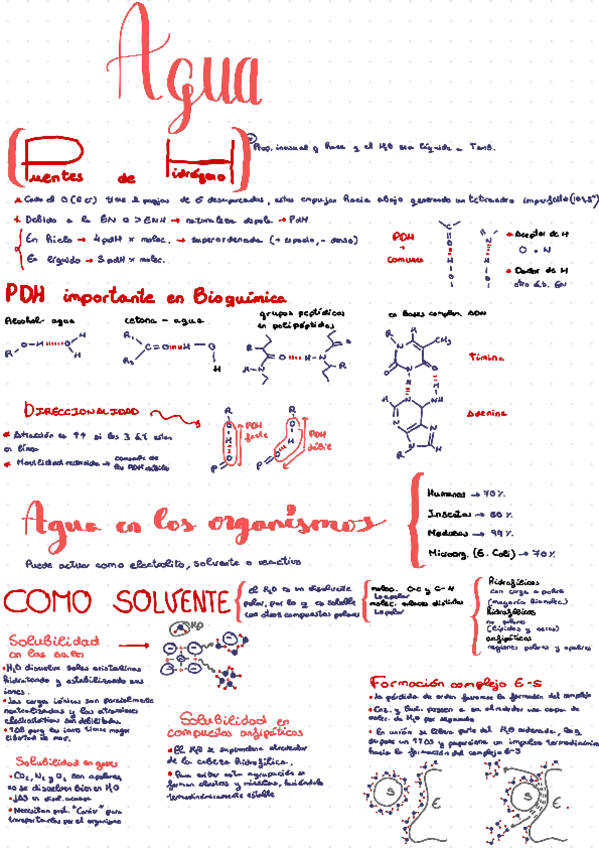 Agua
Puentes de Hidrógeno
Prop. inusual q hace q el H₂O sea líquida a Tamb.
* Cada el O(6σ) tiene 2 parejas de ē desapareadas, estas empujan hacia abajo generando un tetraedro imperfecto (104,5°)
* Debido a la EN O > ENH → naturaleza dipolo → PdH.
En hielo → 4pdH x molec. → superordenada (+ espacio, - denso)
En líquido → 3pdH x molec.
PDH + comunes
→ Aceptor de H
O = N
→ Dador de H
otro át. EN
PDH importante en Bioquímica
Alcohol - agua
cetona - agua
grupos peptídicos en polipéptidos
en bases complem. ADN
R O-H O H H
R₁ R₂ C=O H O H
Timina
Adenina
DIRECCIONALIDAD
* Atracción es ↑↑ si los 3 át. están
en línea
* Movilidad reducida →
los PDH débiles
PDH fuerte
PDH débil
Agua en los organismos
Puede actuar como electrolito, solvente o reactivo
Humanos → 70%
Insectos → 60%
Medusas → 99%
Microorg. (E. Coli) → 70%
COMO SOLVENTE
el H₂O es un disolvente
polar, por lo q es soluble
con otros compuestos polares
molec. C-C y C-H
↳ apolar
molec. enlaces distintos
↳ polar
Hidrofílicos
con carga o polares
(mayoría biomolec.)
Hidrofóbicos
no polares
(lípidos y ceras)
anfipáticos
regiones polares y apolares
Solubilidad
en las sales
H₂O
• H₂O disuelve sales cristalinas
hidratando y estabilizando sus
iones.
• Las cargas iónicas son parcialmente
neutralizadas y las atracciones
electrostáticas son debilitadas.
libertad de mov.
Solubilidad en gases
• CO₂, N₂ y O₂ son apolares,
no se disuelven bien en H₂O
• Necesitan prot. "Carrier" para
transportarlos por el organismo
Solubilidad en
compuestos anfipáticos
• El H₂O se superordena alrededor
de la cabeza hidrofílica.
• Para evitar esta agrupación se
forman clusters y micelas, haciéndolo
termodinámicamente estable
Formación complejo E-S
• la pérdida de orden favorece la formación del complejo
• Enz. y Sust. poseen a su alrededor una capa de
molec. de H₂O por separado
• En unión se libera parte del H₂O ordenada, lo q
supone un ↑↑ΔS y proporciona un impulso termodinámico
hacia la formación del complejo E-S
S E
S E